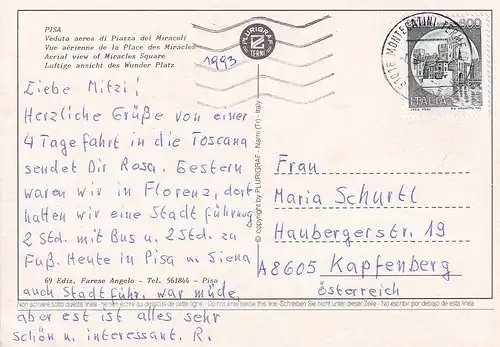 PISA
Veduta aerea di Piazza dei Miracoli
Vue aérienne de la Place des Miracles
Aerial view of Miracles Square
Luftige ansicht des Wunder Platz
PLURIGRAF
TERNI
1993
51016 MONTECATINI TERME
600
ITALIA
Liebe Mitzi!
Herzliche Grüße von einer
4 Tagefahrt in die Toscana
sendet Dir Rosa. Gestern
waren wir in Florenz, dort
hatten wir eine Stadtführung
2 Std. mit Bus u. 2 Std. zu
Fuß. Heute in Pisa u. Siena
69 Ediz. Farese Angelo - Tel. 561844 - Pisa
auch Stadtführ. war müde,
aber est ist alles sehr
schön u. interessant. R.
© copyright by PLURIGRAF - Narni (Tr) - Italy
Frau
Maria Schurtl
Haubergerstr. 19
A8605 Kapfenberg
Österreich
Non scrivere sotto questa linea - Ne rien écrire au dessous de cette ligne - Do not write below this line - Schreiben Sie nicht unter dieser Zeile - No escribir por debajo de esta linea